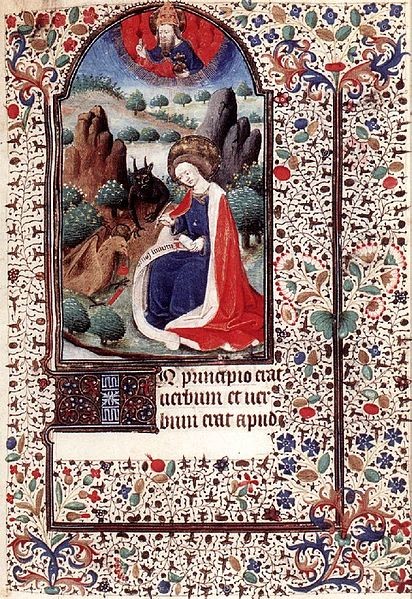 In principio erat
uerbum et uer
bum erat apud